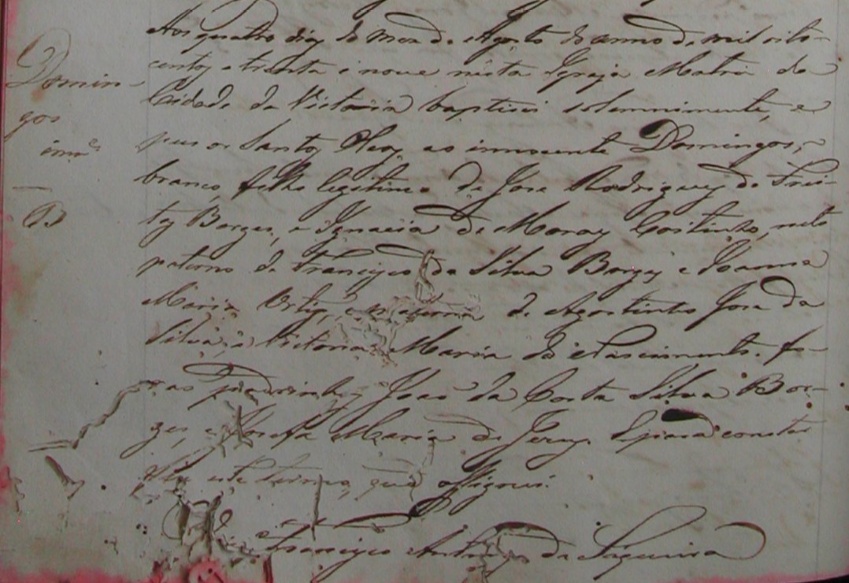 Domin-
gos
inn.e
B
Aos quatro dias do mez de Agosto do anno de mil oito-
centos e trinta e nove nesta Igreja Matriz da
Cidade da Victoria baptisei solemnimente, e
pus os Santos Oleos ao innocente Domingos,
branco, filho legitimo de José Rodrigues de Frei-
tas Borges, e Ignacia de Moraes Coutinho, neto
paterno de Francisco da Silva Borges e Joanna
Maria e materno de Agostinho José da
Silva, e Victoria Maria do Nascimento. fo-
rao Padrinhos João da Costa Silva Bor-
ges, e Josefa Maria de Jesus. E para constar
fiz este termo, que assignei.
Francisco Antunes de Siqueira